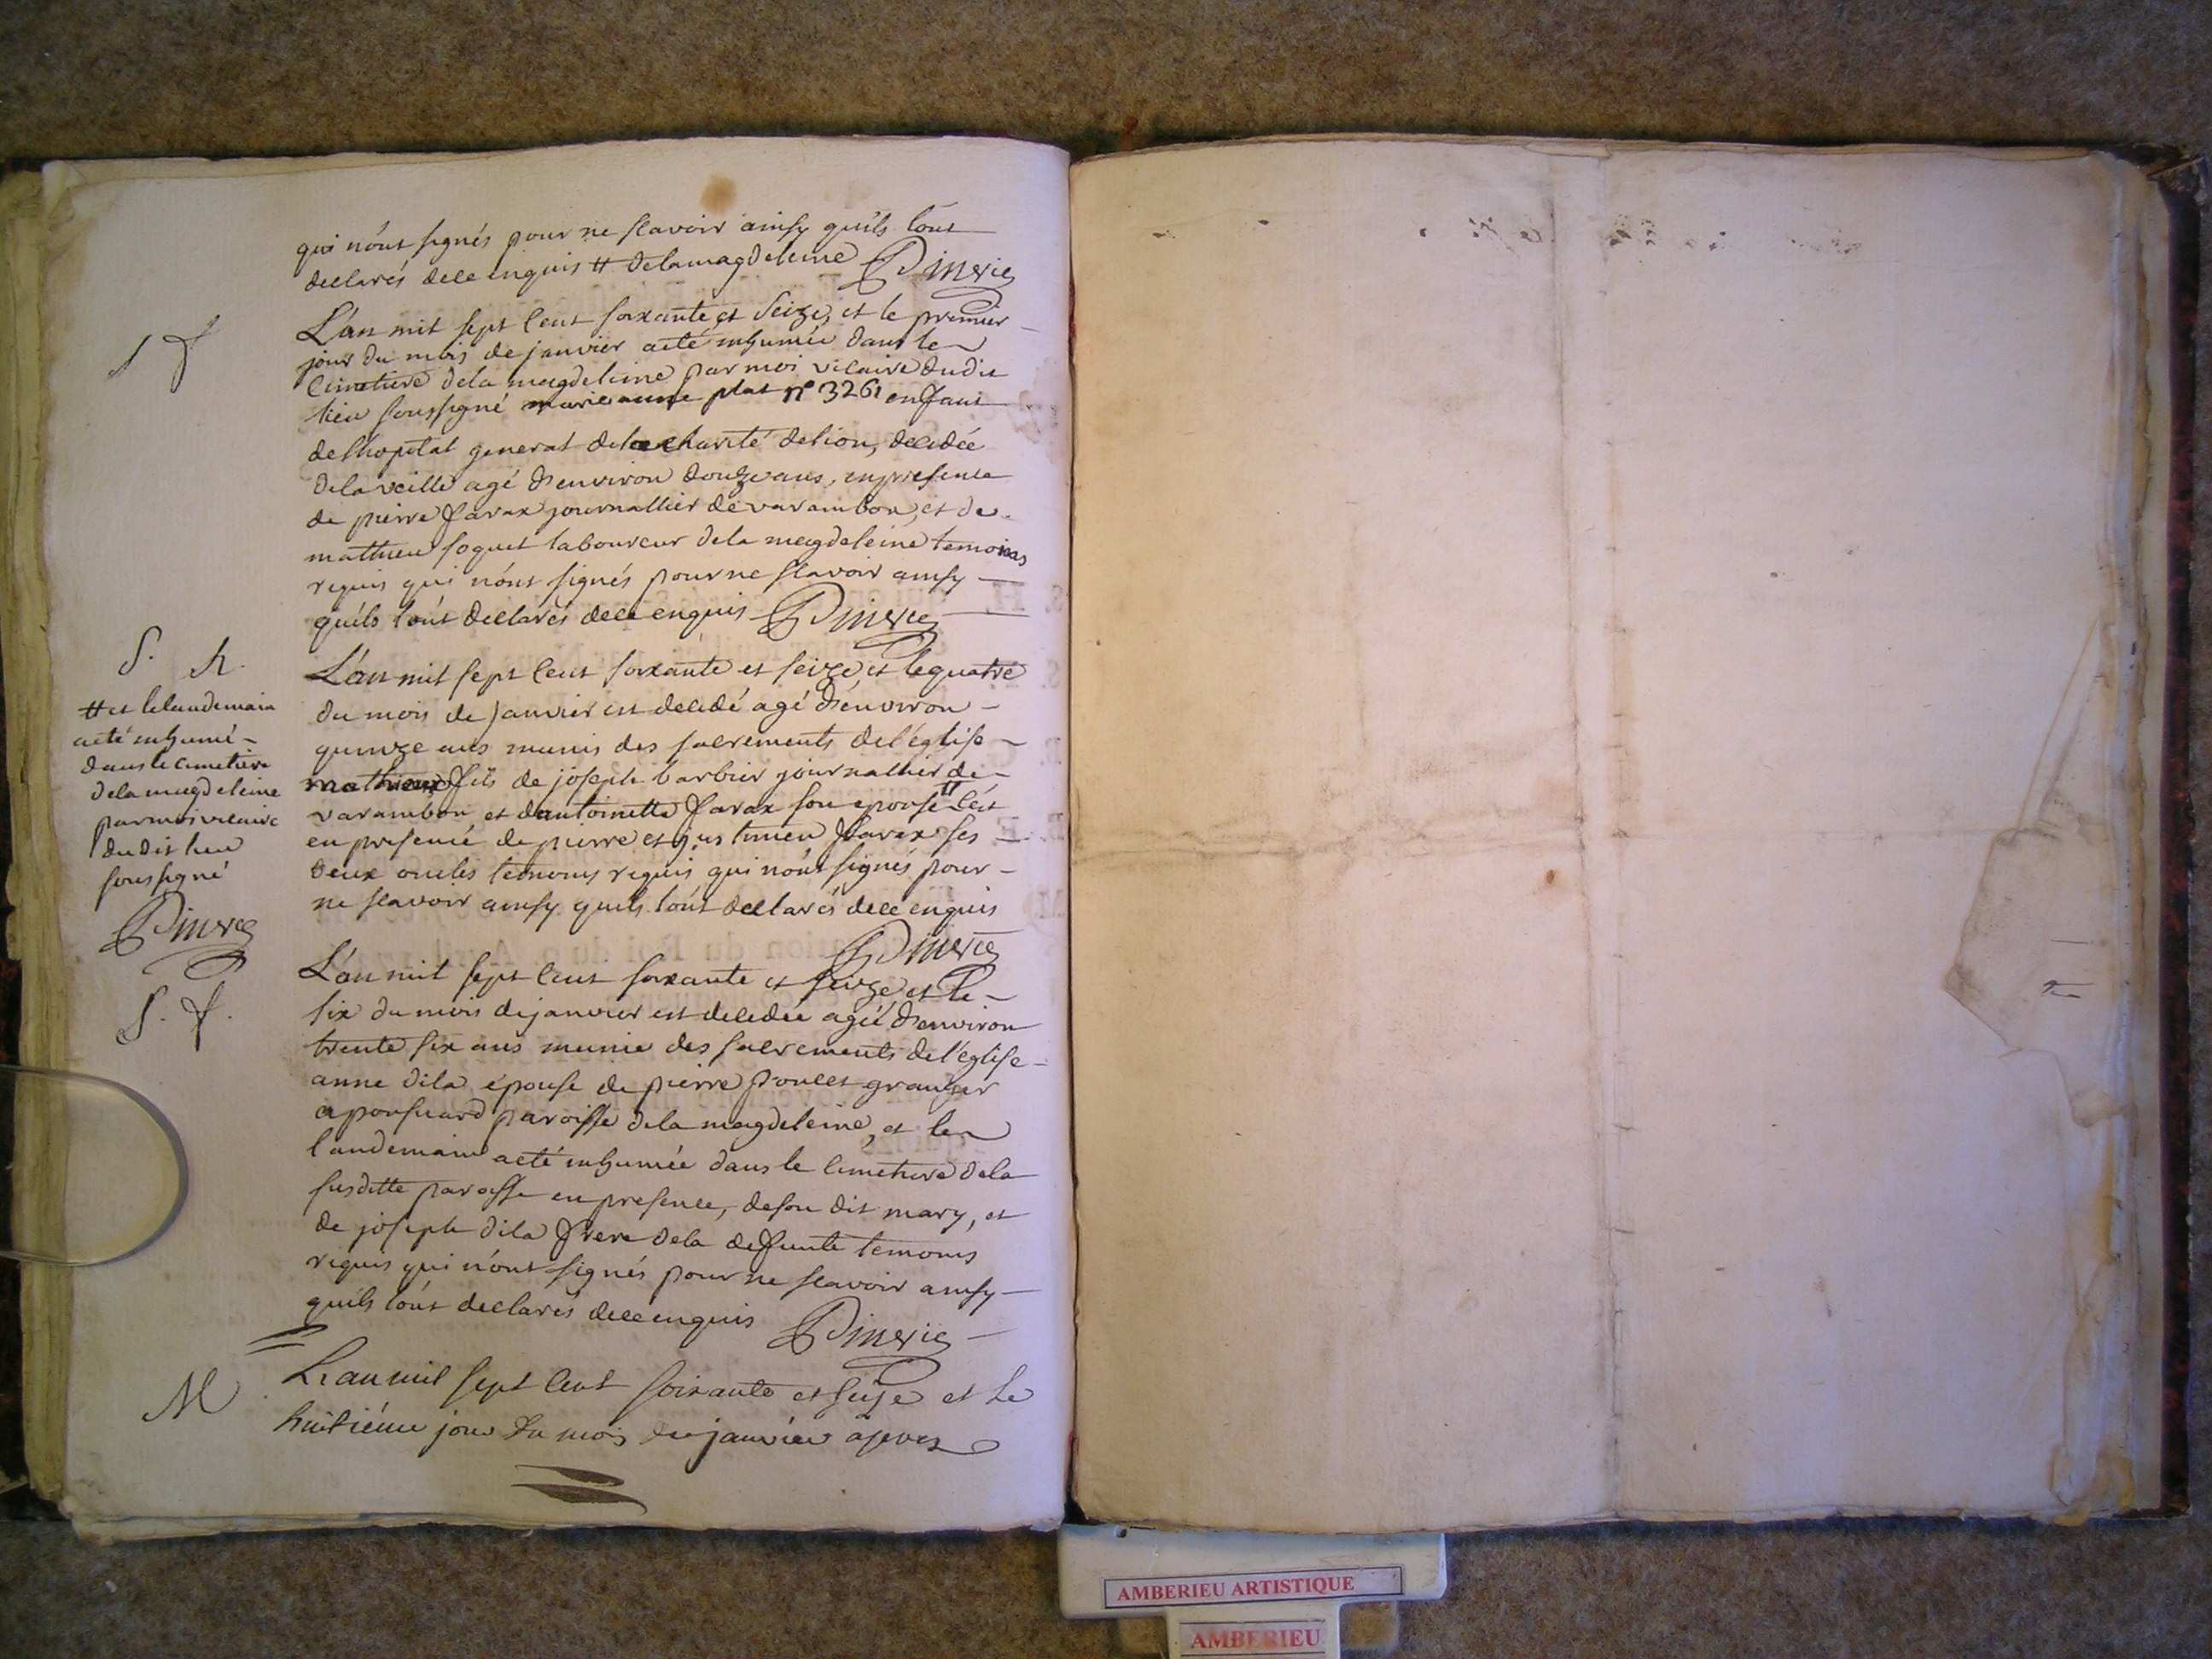 qui n'ont signés pour ne scavoir ainsy qu'ils l'ont
declarés de ce enquis # de la magdeleine
L'an mil sept cent soixante et seize, et le premier
jour du mois de janvier a eté inhumée dans le
cimetiere de la magdeleine par moi vicaire du dit
lieu soussigné marie anne plat n° 3261 enfant
de l'hopital general de la charité de lion, decedée
de la veille agé d'environ douze ans, en presence
de pierre farax journallier de varambon, et de
mathieu foquet laboureur de la magdeleine temoins
requis qui n'ont signés pour ne scavoir ainsy
qu'ils l'ont declarés de ce enquis
S. h.
L'an mil sept cent soixante et seize, et le quatre
du mois de janvier est decedé agé d'environ
quinze ans munis des sacrements de l'église
mathieu fils de joseph barbier journallier de
varambon et d'antoinette farax son epouse # c'est
en presence de pierre et justinien farax ses
deux oncles temoins requis qui n'ont signés pour
ne scavoir ainsy qu'ils l'ont declarés de ce enquis
# et le landemain
a eté inhumé
dans le cimetiere
de la magdeleine
par moi vicaire
du dit lieu
soussigné
S. f.
L'an mil sept cent soixante et seize, et le
six du mois de janvier est decedée agée d'environ
trente six ans munie des sacrements de l'église
anne dila épouse de pierre poncet granger
a ponsuard paroisse de la magdeleine, et le
landemain a eté inhumée dans le cimetiere de la
susditte paroisse en presence, de son dit mary, et
de joseph dila frere de la defunte temoins
requis qui n'ont signés pour ne scavoir ainsy
qu'ils l'ont declarés de ce enquis
M
L'an mil sept cent soixante et seize et le
huitiéme jour du mois de janvier après
AMBERIEU ARTISTIQUE
AMBERIEU